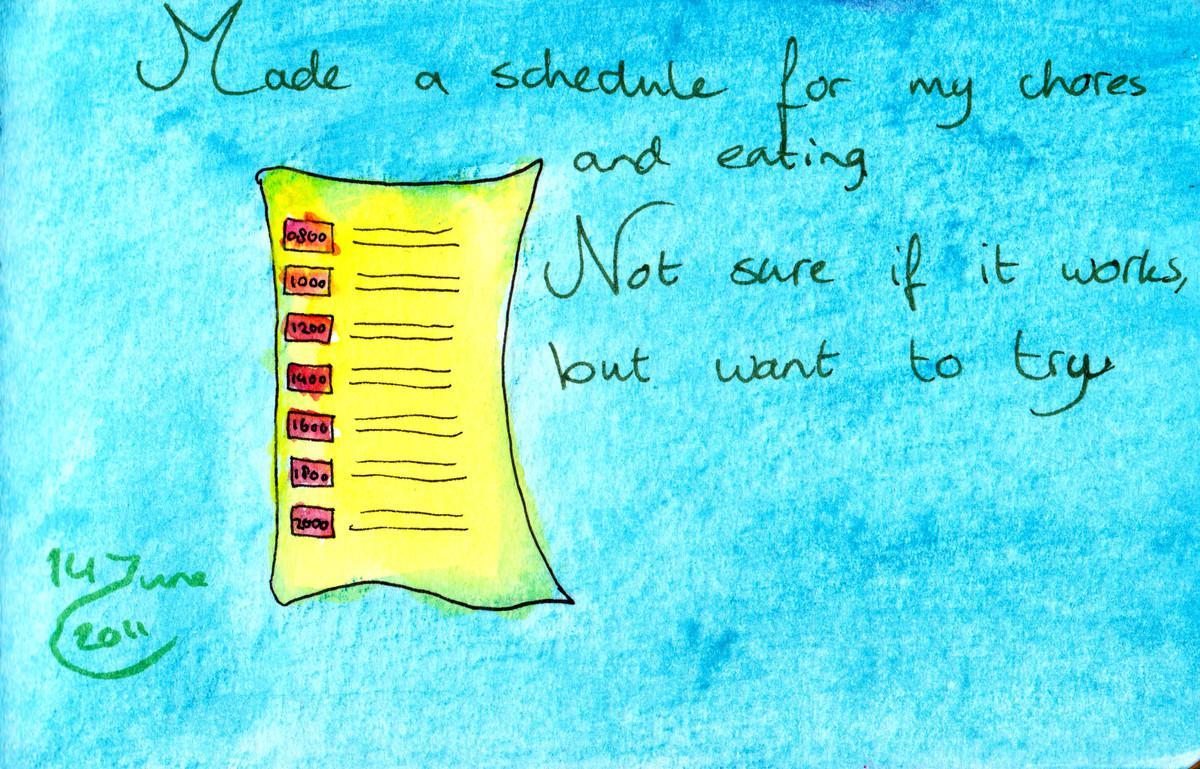 Made a schedule for my chores
and eating
Not sure if it works,
but want to try
0800
1000
1200
1400
1600
1800
2000
14 June
2011